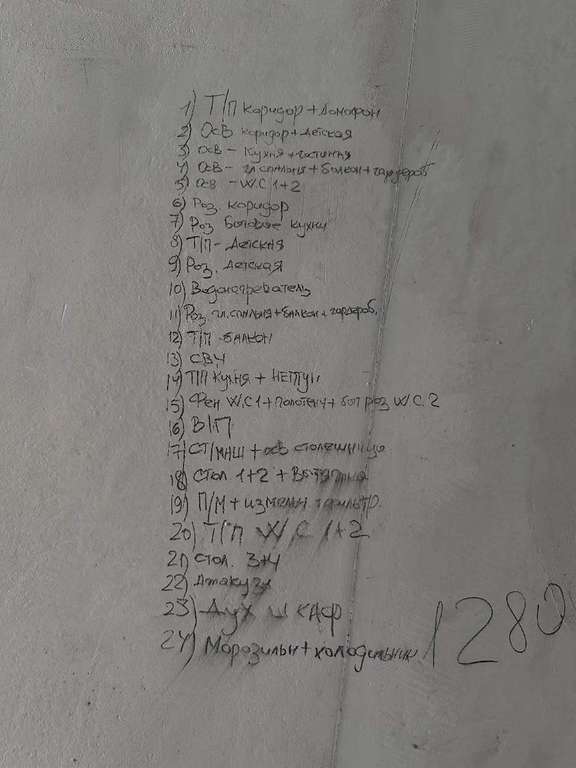 1) Т/П коридор + домофон
2) Осв коридор + детская
3) Осв - кухня + гостиная
4) Осв - гл. спальня + балкон + гардероб
5) Осв - W.C 1+2
6) Роз. коридор
7) Роз бытовые кухни
8) Т/П - Детская
9) Роз. детская
10) Водонагреватель
11) Роз. гл. спальня + балкон + гардероб.
12) Т/П балкон
13) СВЧ
14) Т/П кухня + НЕПТУН
15) Фен W.C 1 + полотен + быт роз W.C. 2
16) В/П
17) СТ/маш + осв столешница
18) Стол 1+2 + Вытяжка
19) П/М + измельч
20) Т/П W.C 1+2
21) Стол. 3+4
22) Джакузи
23) Дух шкаф
24) Морозильн + холодильник
1280